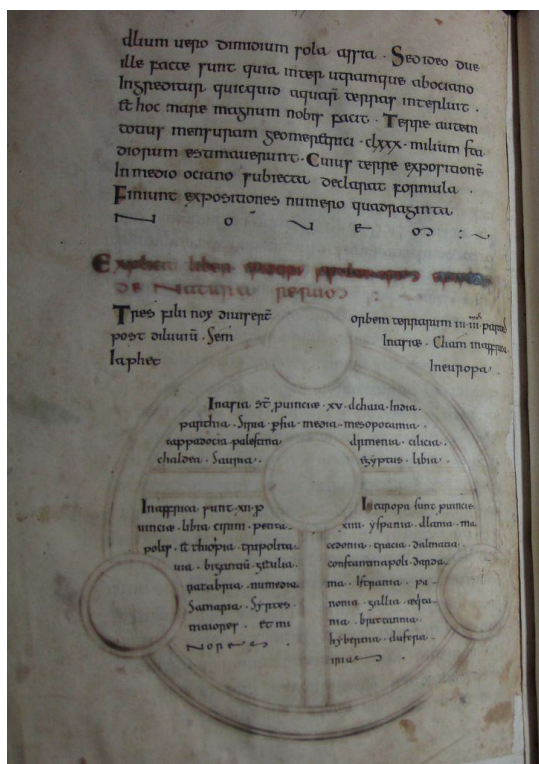 dium uero dimidium sola affrica. Sed ideo due
ille facte sunt quia inter utramque abociano
Ingreditur quicquid aquarū terras interluit.
Et hoc mare magnum nobis facit. Terre autem
totius mensuram geometrici . clxxx . milium sta
diorum estimauerunt. Cuius terre expositionē
In medio ociano subiecta declarat formula.
Finiunt expositiones numero quadraginta
N O U E M
Explicit liber
de Natura rerum
Tres filii noe diuiserūt
orbem terrarum in iii partes
post diluuiū . Sem
In asia . Cham in affrica
Iaphet
In europa .
In asia st̄ puinciæ . xv . achaia . India .
parthia . Siria . psia . media . mesopotamia .
cappadocia palestina
armenia . cilicia .
chaldea . Sauria .
egyptus . libia .
In affrica sunt . xii . p
uinciæ . libia cirini . penta
polis . Ethiopia . tripolita
nia . bizantiū . getulia .
natabria . numedia .
Samaria . Syrtes .
maiores . et mi
nores
In europa sunt puinciæ
xiiii . yspania . alama . ma
cedonia . tracia . dalmatia .
constantinapoli . darda
nia . Istriania . pa
nonia . gallia . æqta
nia . brittannia .
hybernia . dusria
nia